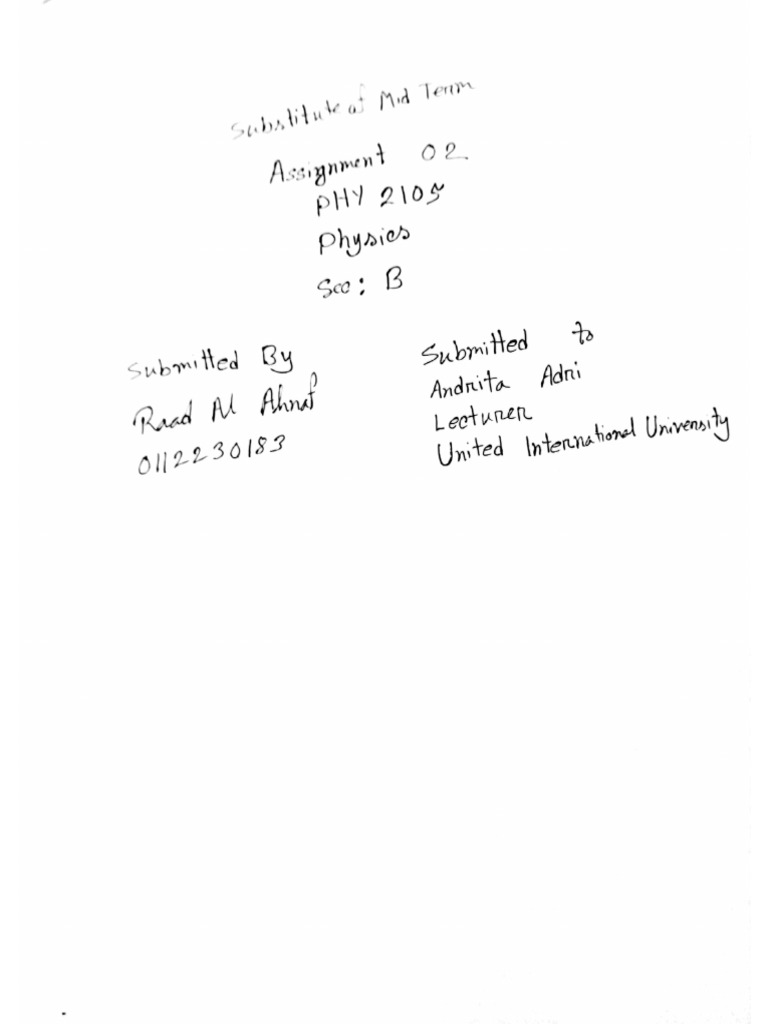 Substitute of Mid Term
Assignment 02
PHY 2105
Physics
Sec: B
Submitted By
Raad Al Ahnaf
0112230183
Submitted to
Andrita Adri
Lecturer
United International University